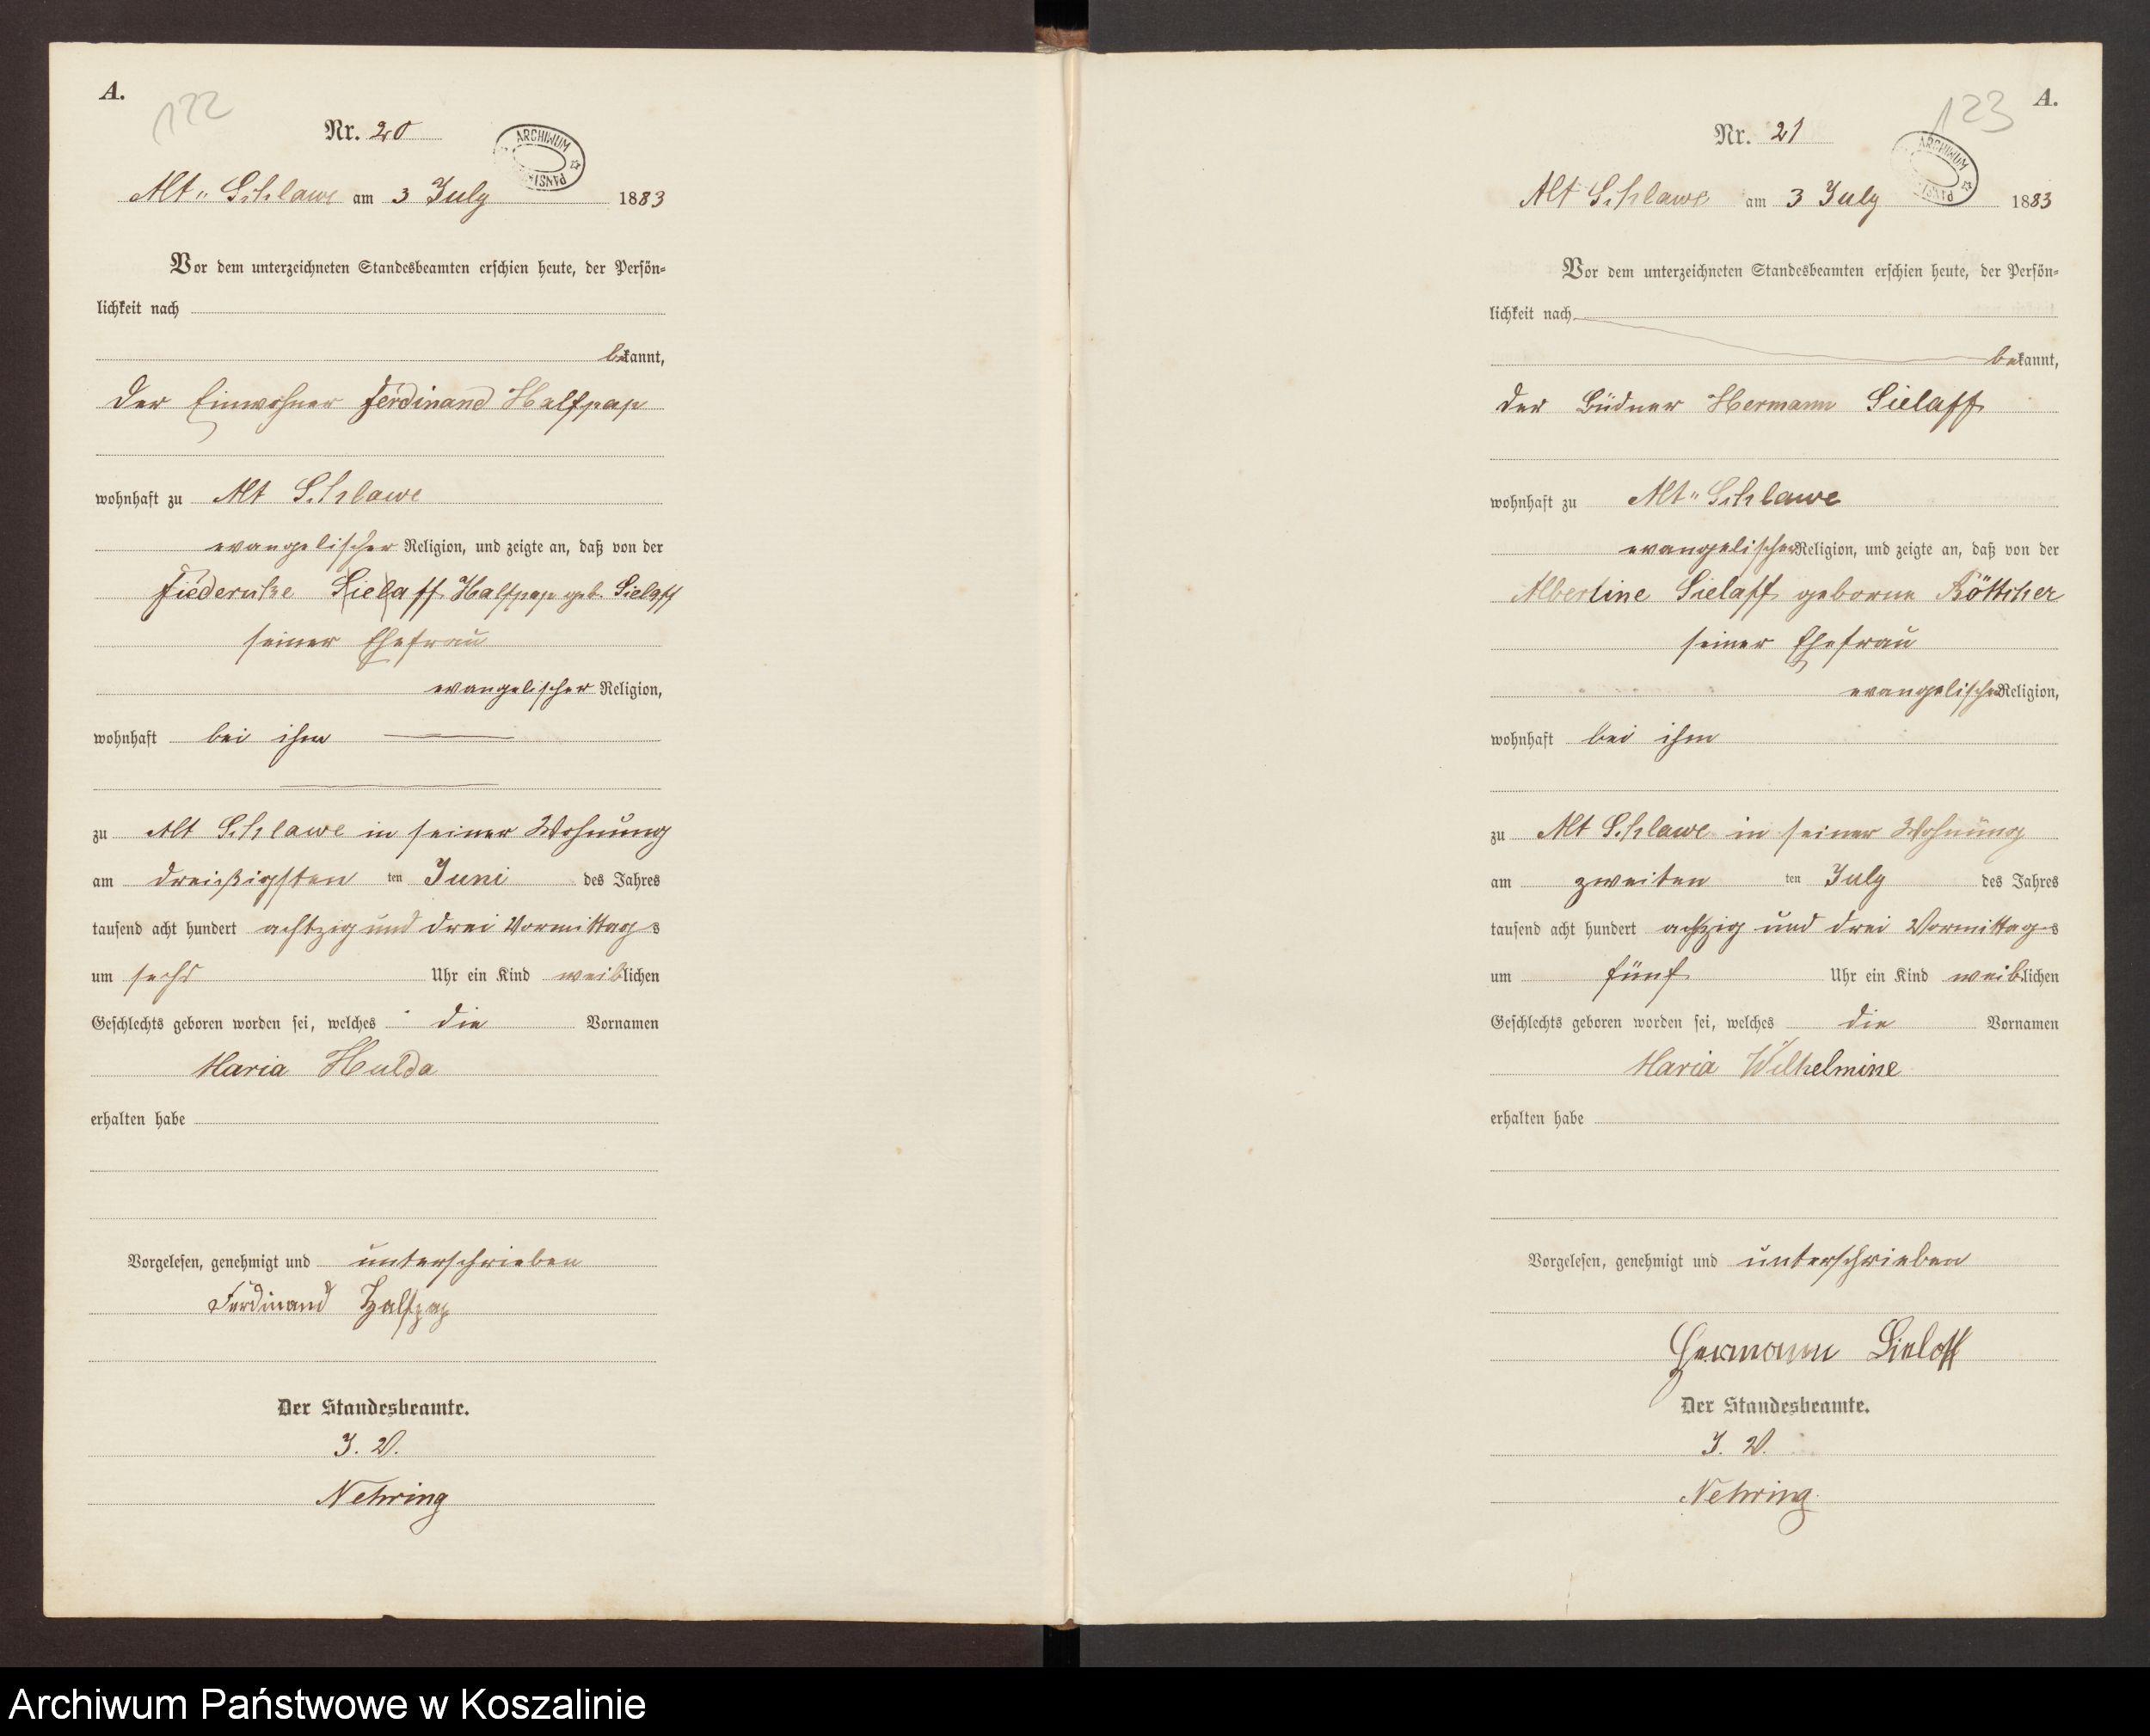 A.
122
Nr. 20
ARCHIWUM PAŃST
Alt- Schlawe am 3 July 1883
Vor dem unterzeichneten Standesbeamten erschien heute, der Persön-
lichkeit nach
bekannt,
der Einwohner Ferdinand Halfpap
wohnhaft zu Alt Schlawe
evangelischer Religion, und zeigte an, daß von der
Friederike Sielaff Halfpap geb. Sielaff
seiner Ehefrau
evangelischer Religion,
wohnhaft bei ihm
zu Alt Schlawe in seiner Wohnung
am dreißigsten ten Juni des Jahres
tausend acht hundert achtzig und drei Vormittags
um sechs Uhr ein Kind weiblichen
Geschlechts geboren worden sei, welches die Vornamen
Maria Hulda
erhalten habe
Vorgelesen, genehmigt und unterschrieben
Ferdinand Halfpap
Der Standesbeamte.
I. V.
Nehring
A.
123
Nr. 21
ARCHIWUM PAŃST
Alt Schlawe am 3 July 1883
Vor dem unterzeichneten Standesbeamten erschien heute, der Persön-
lichkeit nach
bekannt,
der Büdner Hermann Sielaff
wohnhaft zu Alt- Schlawe
evangelischer Religion, und zeigte an, daß von der
Albertine Sielaff geborne Böttcher
seiner Ehefrau
evangelischer Religion,
wohnhaft bei ihm
zu Alt Schlawe in seiner Wohnung
am zweiten ten July des Jahres
tausend acht hundert achtzig und drei Vormittags
um fünf Uhr ein Kind weiblichen
Geschlechts geboren worden sei, welches die Vornamen
Maria Wilhelmine
erhalten habe
Vorgelesen, genehmigt und unterschrieben
Hermann Sielaff
Der Standesbeamte.
I. V.
Nehring
Archiwum Państwowe w Koszalinie